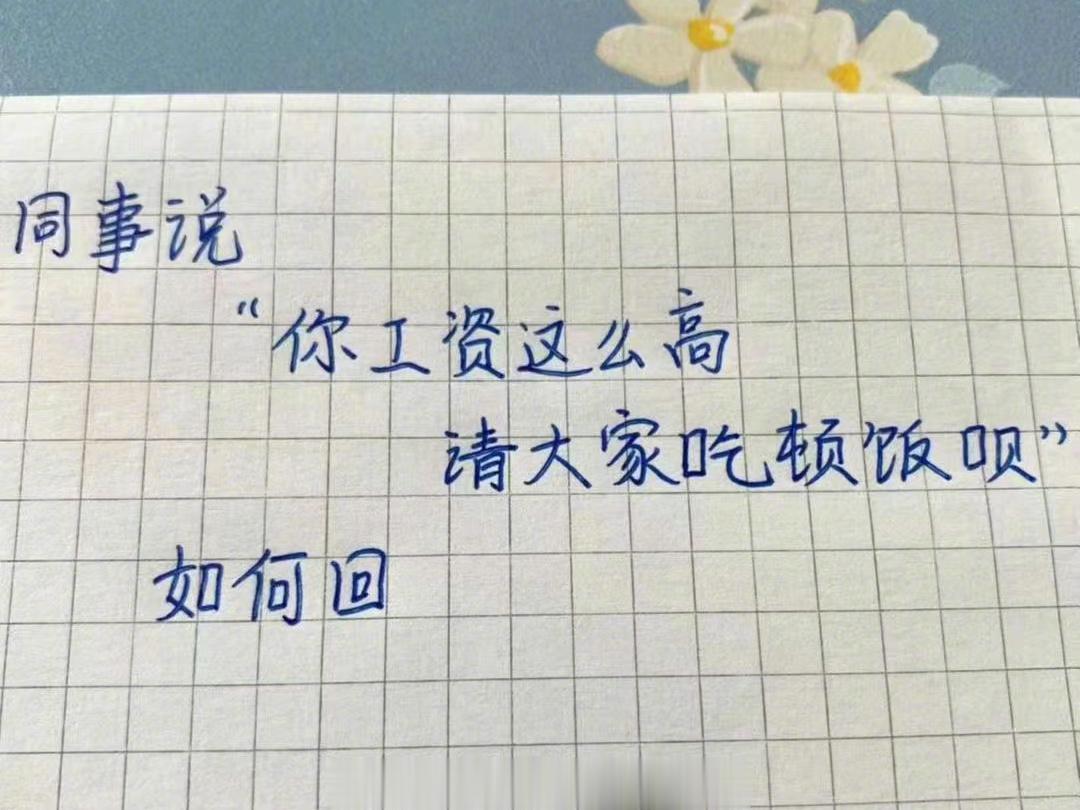 同事说
“你工资这么高
请大家吃顿饭呗”
如何回